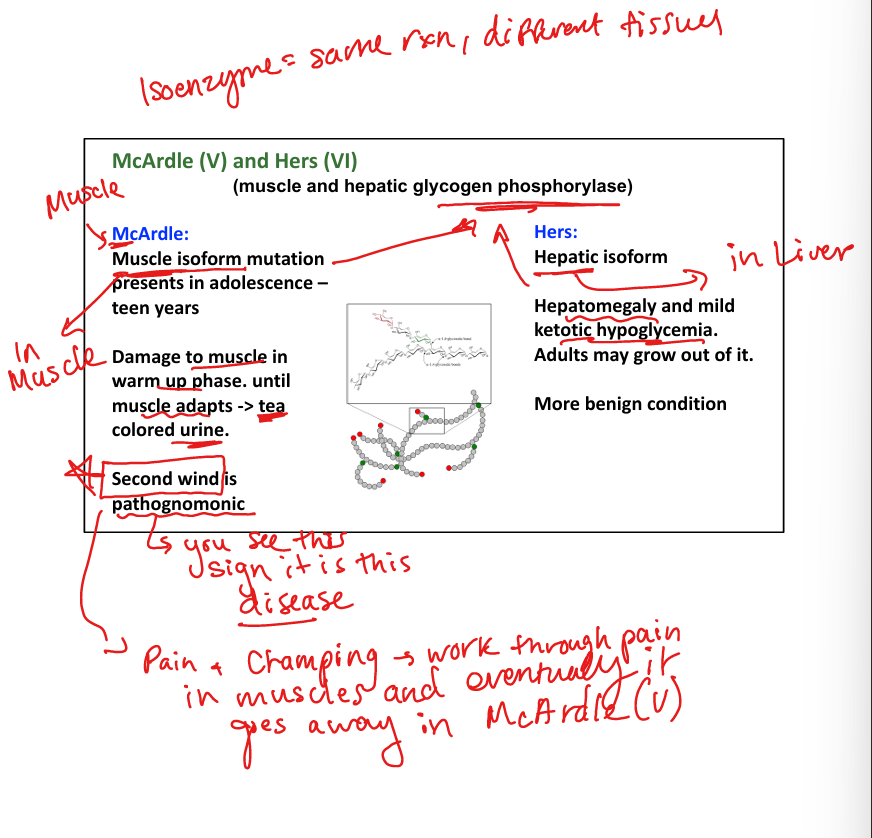 Isoenzyme = same rxn, different tissues
McArdle (V) and Hers (VI)
(muscle and hepatic glycogen phosphorylase)
Muscle
McArdle:
Muscle isoform mutation
presents in adolescence –
teen years
In
Muscle
Damage to muscle in
warm up phase. until
muscle adapts -> tea
colored urine.
Second wind is
pathognomonic
Hers:
Hepatic isoform
in Liver
Hepatomegaly and mild
ketotic hypoglycemia.
Adults may grow out of it.
More benign condition
you see this
sign it is this
disease
Pain & Cramping → work through pain
in muscles and eventually it
goes away in McArdle (V)